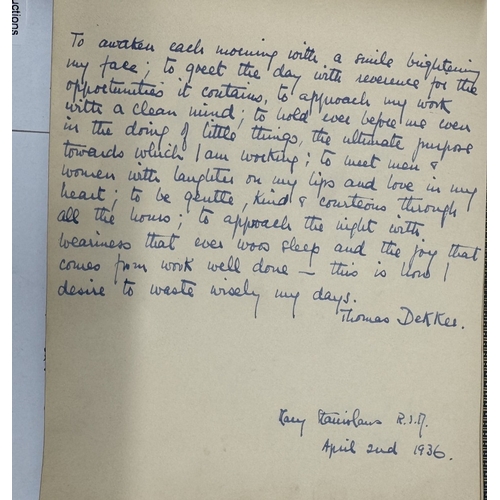 uctions
To awaken each morning with a smile brightening
my face; to greet the day with reverence for the
opportunities it contains, to approach my work
with a clean mind; to hold ever before me even
in the doing of little things, the ultimate purpose
towards which I am working; to meet men &
women with laughter on my lips and love in my
heart; to be gentle, kind & courteous through
all the hours; to approach the night with
weariness that ever woos sleep and the joy that
comes from work well done – this is how I
desire to waste wisely my days.
Thomas Dekker.
Mary Stanislaus R.S.M.
April 2nd 1936.